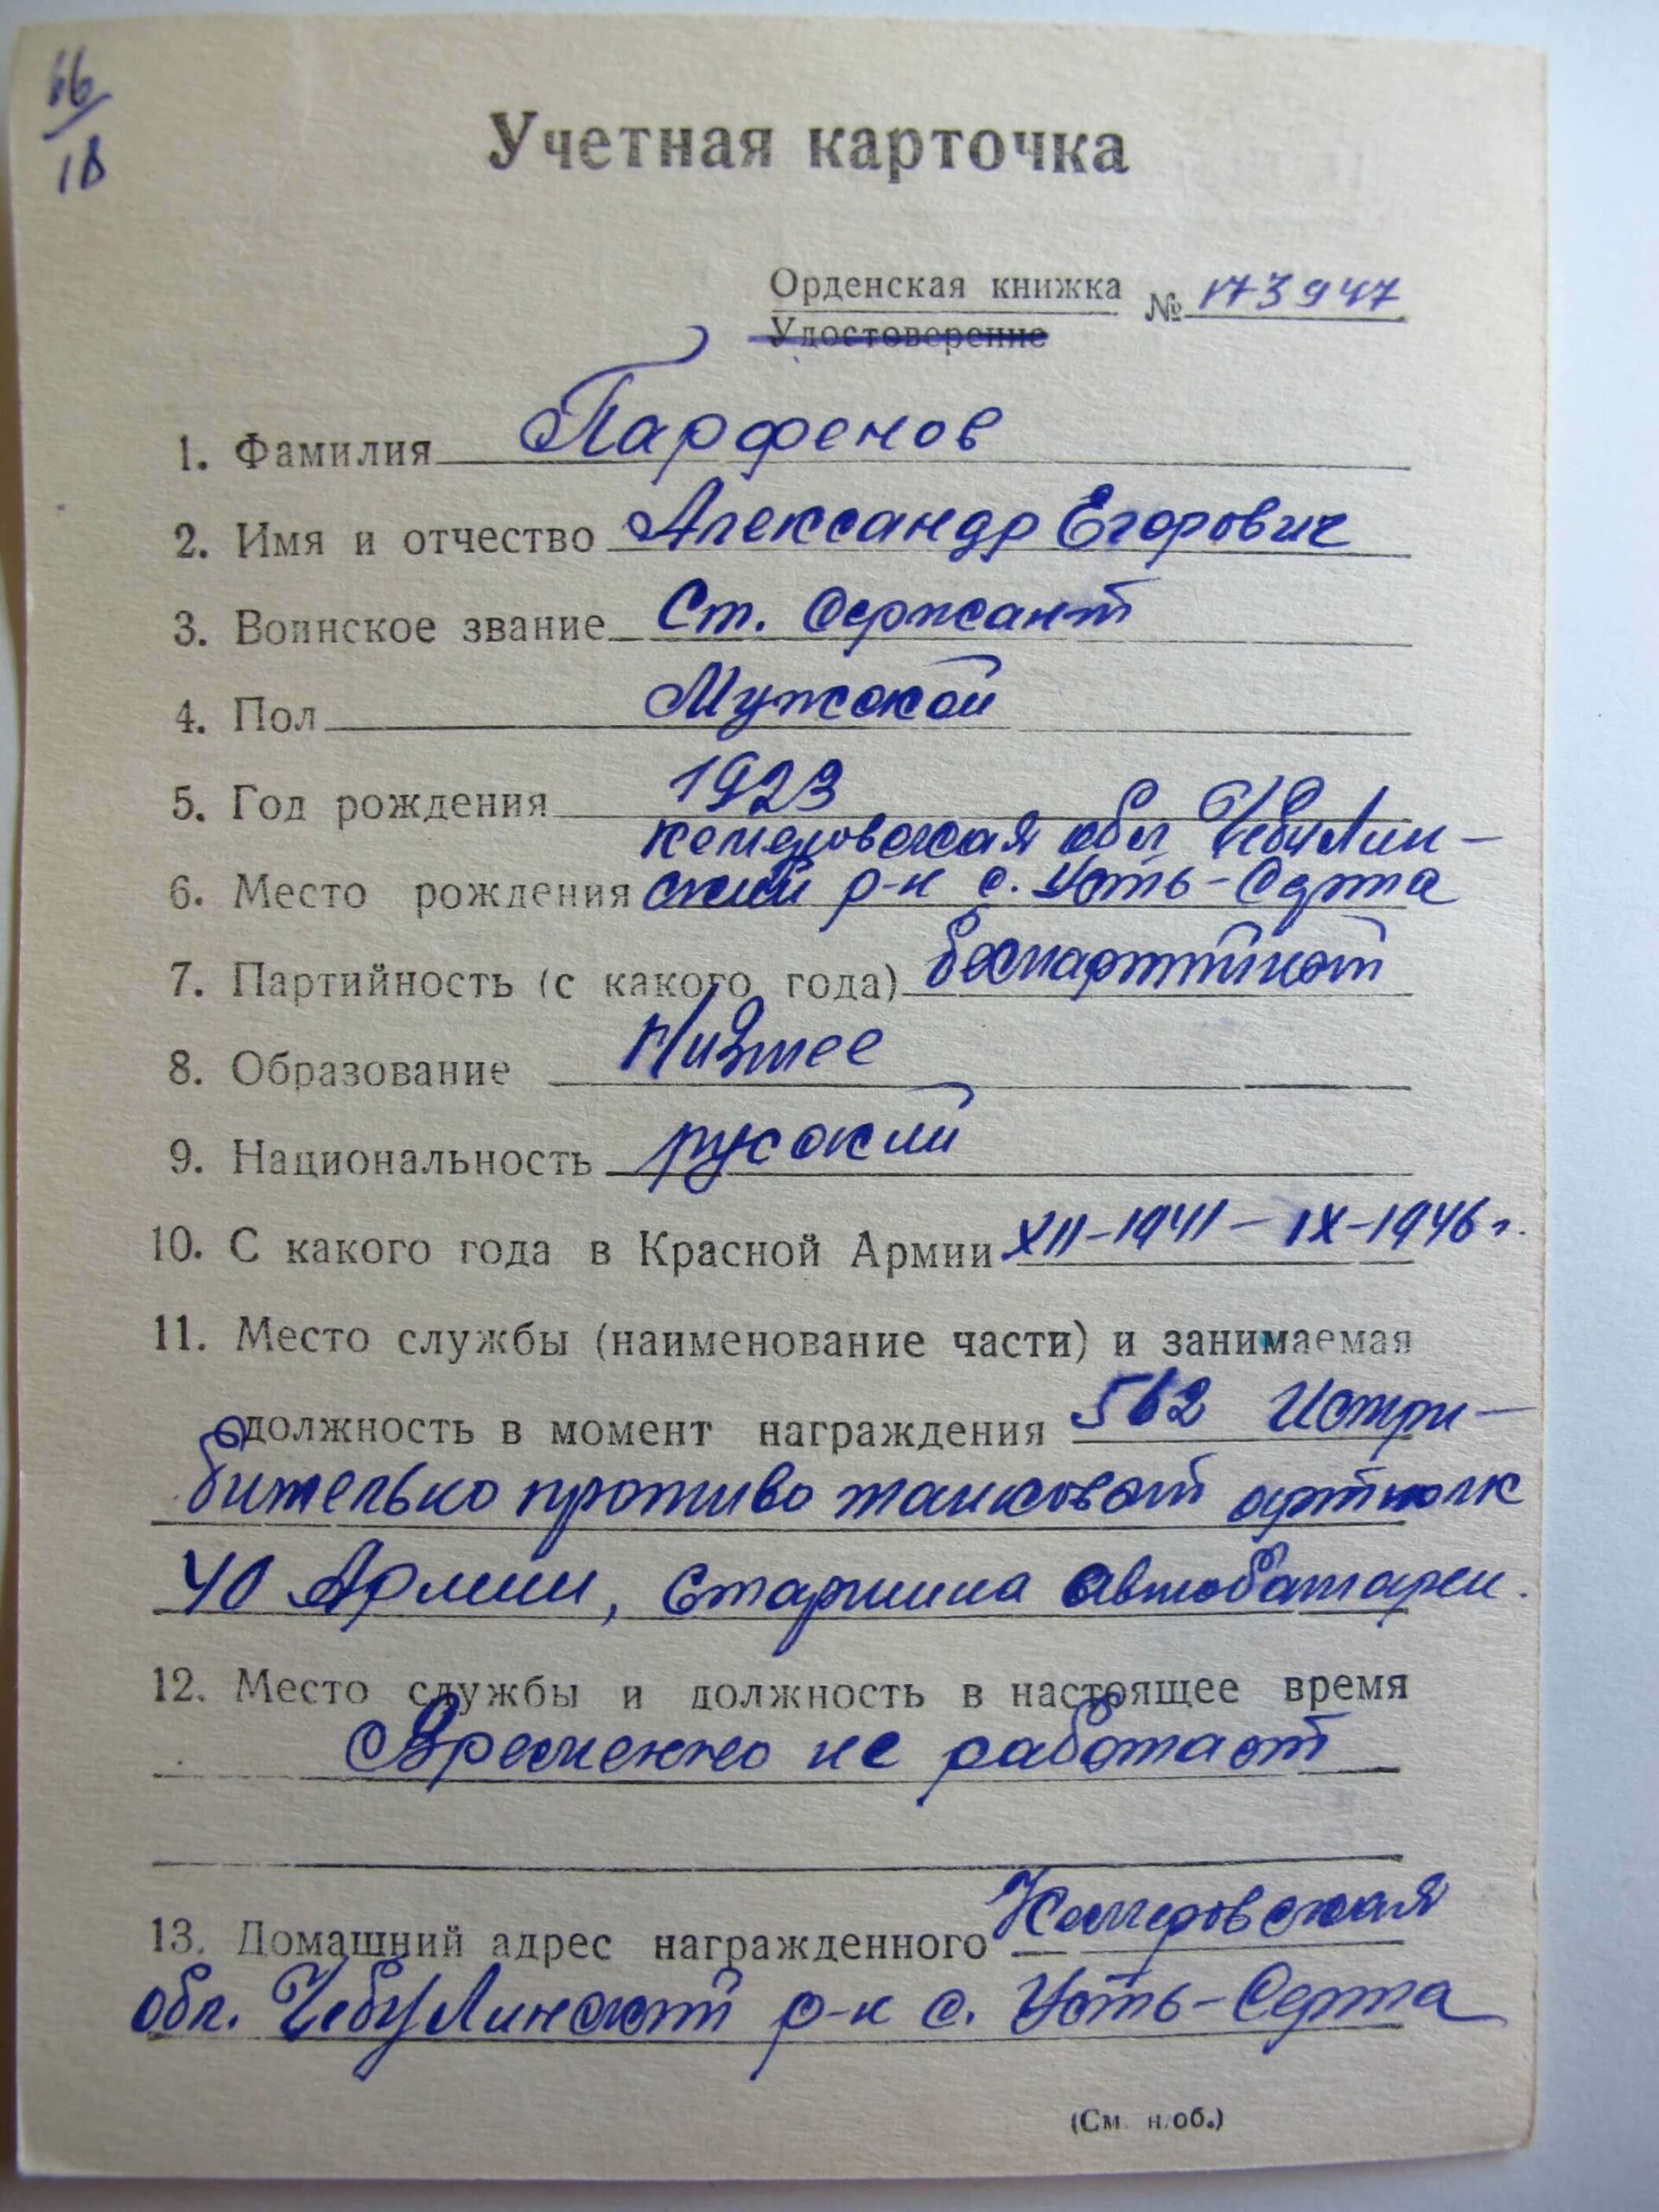 66/18
Учетная карточка
Орденская книжка № 173947
Удостоверение
1. Фамилия Парфенов
2. Имя и отчество Александр Егорович
3. Воинское звание Ст. Сержант
4. Пол Мужской
5. Год рождения 1923
Кемеровская обл Чебулин-
6. Место рождения ский р-н с. Усть-Серта
7. Партийность (с какого года) беспартийный
8. Образование Низшее
9. Национальность русский
10. С какого года в Красной Армии XII-1941 - IX-1946 г.
11. Место службы (наименование части) и занимаемая
должность в момент награждения 562 Истри-
бительно противо танковый артполк
40 Армии, Старшина автобатареи.
12. Место службы и должность в настоящее время
Временно не работает
13. Домашний адрес награжденного Кемеровская
обл. Чебулинский р-н с. Усть-Серта
(См. н/об.)